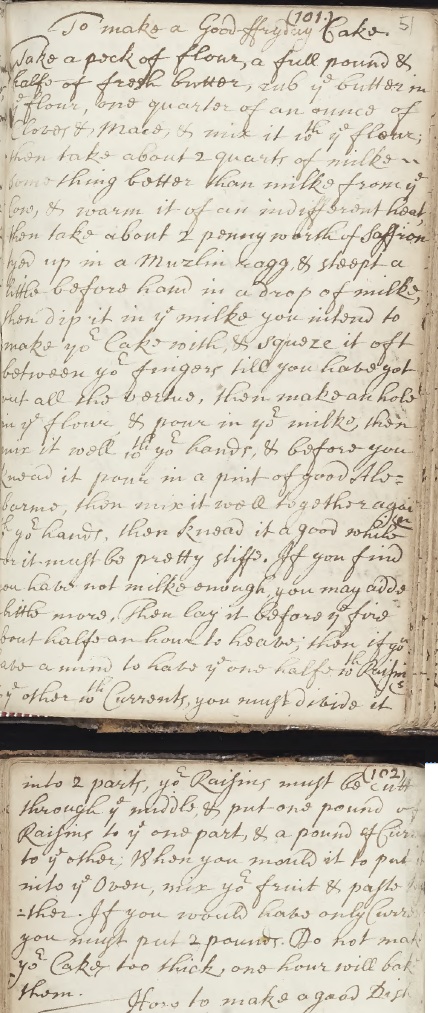 (101.)
51
To make a Good ffryday Cake.
Take a peck of flour, a full pound &
halfe of fresh butter, rub ye butter in
ye flour, one quarter of an ounce of
Cloves & Mace, & mix it wth ye flour;
then take about 2 quarts of milke
something better than milke from ye
Cow, & warm it of an indifferent heat,
then take about 2 penny worth of Saffron
tyed up in a Muzlin ragg, & steept a
little before hand in a drop of milke,
then dip it in ye milke you intend to
make yor Cake with, & squeze it oft
between yor fingers till you have got
out all the vertue, then make an hole
in ye flour & pour in yor milke, then
mix it well wth yor hands, & before you
knead it pour in a pint of good Ale=
barme, then mix it well together again
yor hands, then knead it a good while
for it must be pretty stiffe. If you find
you have not milke enough, you may adde
little more. Then lay it before ye fire
about halfe an hour to heave; then if you
have a mind to have ye one halfe wth Raisins
ye other wth Currents, you must divide it
(102)
into 2 parts, yor Raisins must be cutt
through ye middle, & put one pound of
Raisins to ye one part, & a pound of Curr
to ye other; When you mould it to put
into ye Oven, mix yor fruit & paste
=ther. If you would have only Curr
you must put 2 pounds. Do not mak
yor Cakes too thick, one hour will bak
them.
How to make a good Dish